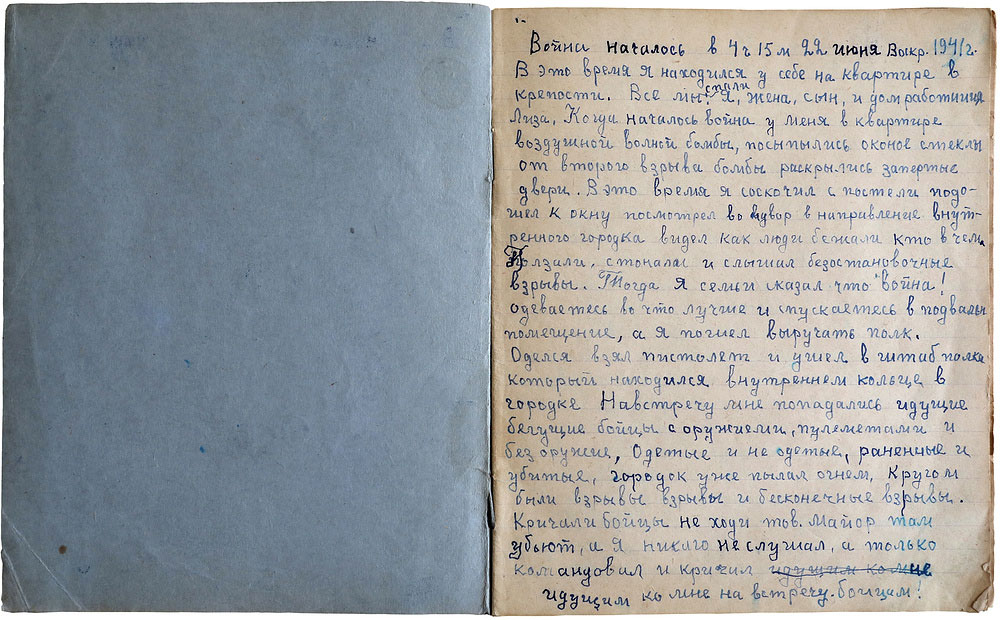 Война началось в 4 ч 15 м 22 июня Воскр. 1941 г.
В это время я находился у себе на квартире в
спали
крепости. Все мы: Я, жена, сын, и домработница
Лиза, Когда началось война у меня в квартире
воздушной волной бомбы, посыпылись оконое стеклы
от второго взрыва бомбы раскрылись запертые
двери. В это время я соскочил с постели подо-
шел к окну посмотрел во двор в направление внут-
ренного городка видел как люди бежали кто в чем
ползали, стонали и слышал безостановочные
взрывы. Тогда я семьи сказал что война!
одеваетесь во что лучше и спускаетесь в подвальн
помещение, а я пошел выручать полк.
Оделся взял пистолет и ушел в штаб полка
который находился внутреннем кольце в
городке Навстречу мне попадались идущие
бегущие бойцы с оружиеми, пулеметами и
без оружие, Одетые и не одетые, раненные и
убитые, городок уже пылал огнем, Кругом
были взрывы взрывы и бесконечные взрывы.
Кричали бойцы не ходи тов. Майор там
убьют, а я никаго не слушал, а только
командовал и кричил идущим ко мне
идущим ко мне на встречу. бойцам!